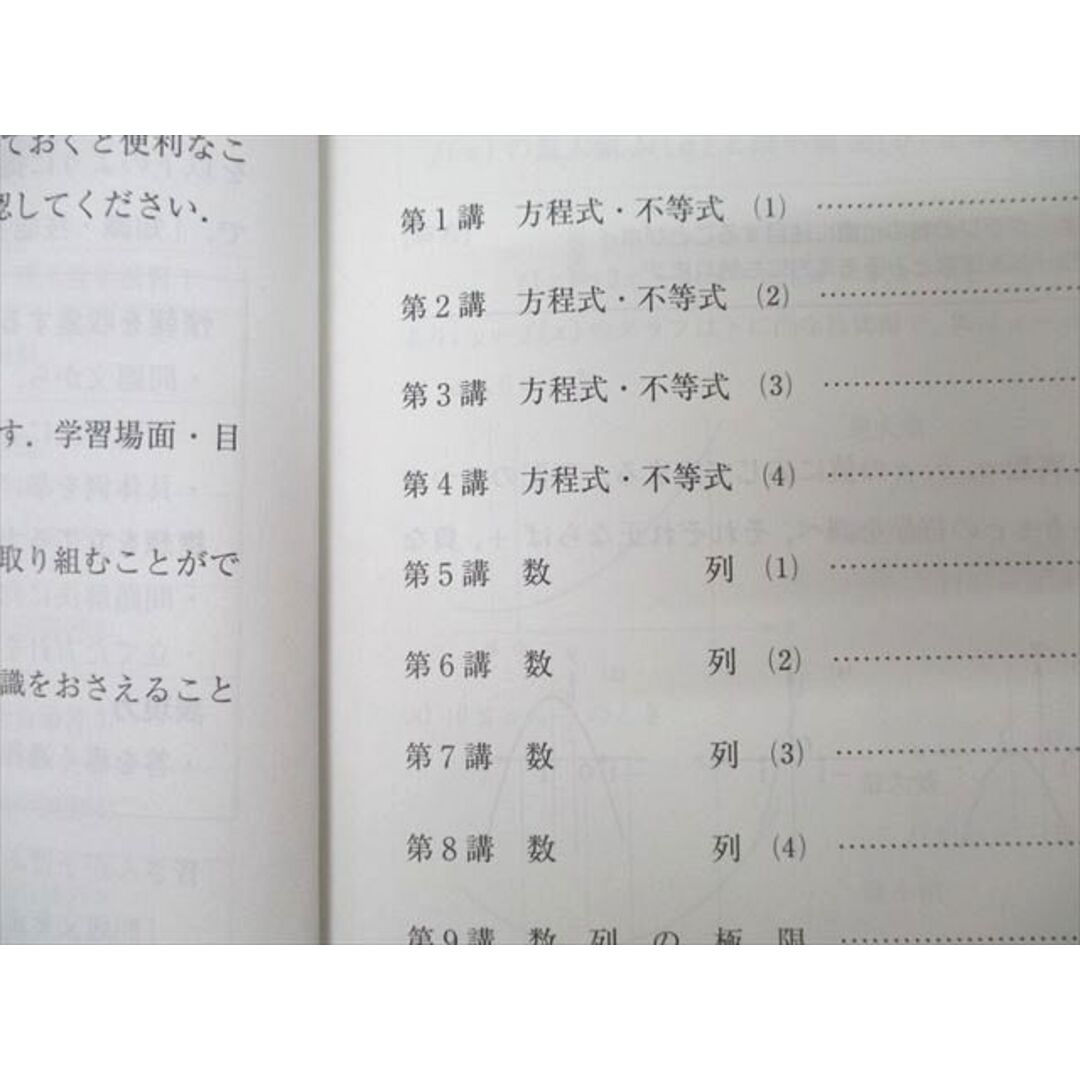 ておくと便利なこ
認してください．
す．学習場面・目
取り組むことがで
識をおさえること
第1講 方程式・不等式 (1) ……………
第2講 方程式・不等式 (2) ……………
第3講 方程式・不等式 (3) ……………
第4講 方程式・不等式 (4) ……………
第5講 数 列 (1) ……………
第6講 数 列 (2) ……………
第7講 数 列 (3) ……………
第8講 数 列 (4) ……………
第9講 数列の極限 ……………